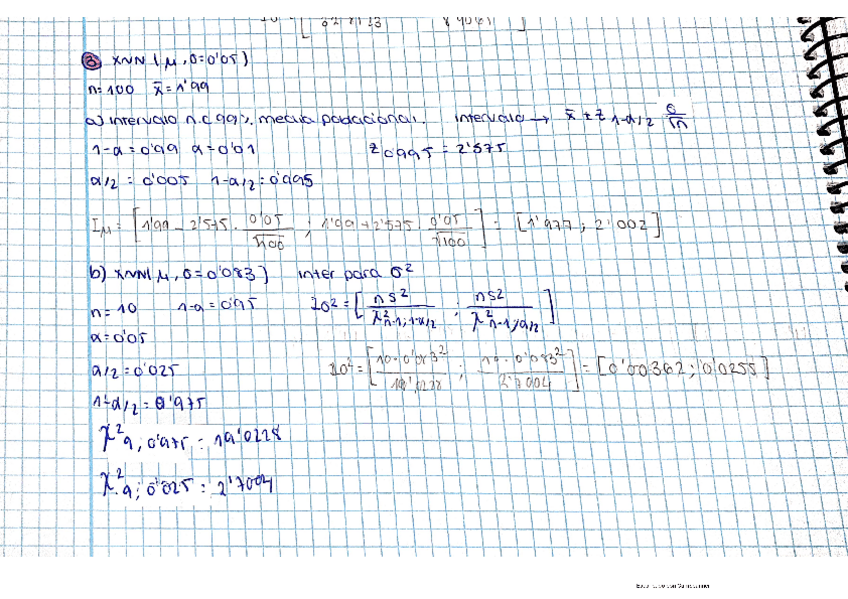 ③ X~N(μ, σ=0'05)
n=100 x̄=1'99
a) intervalo n.c 99% media poblacional. intervalo → x̄ ± z 1-α/2 σ/√n
1-α=0'99 α=0'01 z 0'995 = 2'575
α/2 = 0'005 1-α/2=0'995
Iμ = [1'99 - 2'575 · 0'05/√100 ; 1'99 + 2'575 · 0'05/√100] = [1'977 ; 2'002]
b) X~N(μ, σ=0'083) inter para σ²
n=10 1-α=0'95 Iσ² = [ns²/χ²n-1; 1-α/2 ; ns²/χ²n-1; α/2]
α=0'05
α/2=0'025 Iσ² = [10·0'083²/19'0228 ; 10·0'083²/2'7004] = [0'00362 ; 0'0255]
1-α/2=0'975
χ²9; 0'975 = 19'0228
χ²9; 0'025 = 2'7004